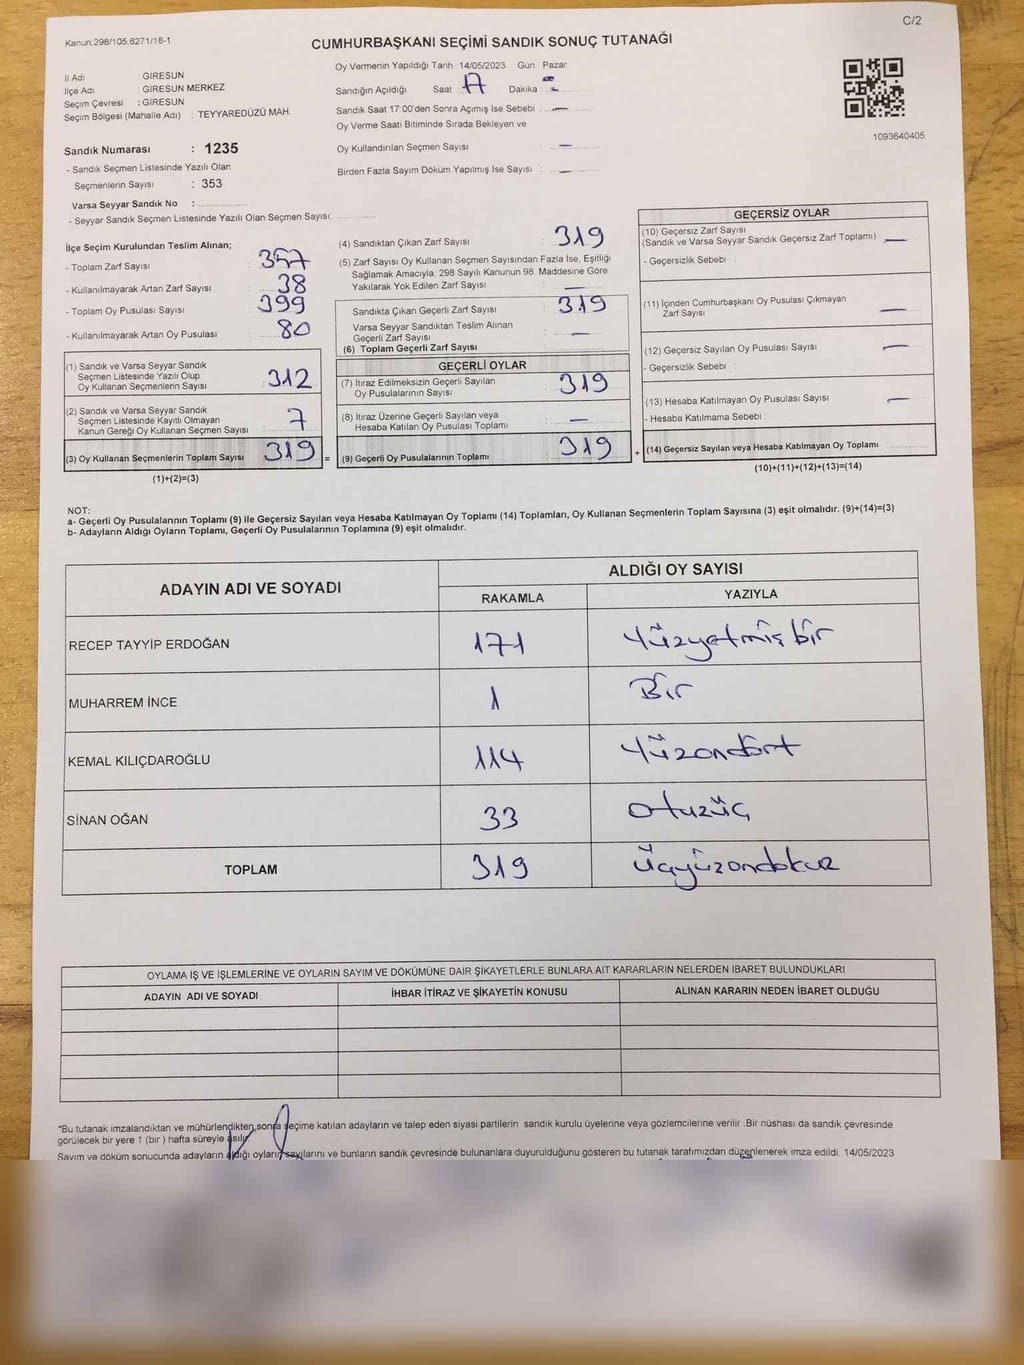 C/2
Kanun:298/105,6271/18-1
CUMHURBAŞKANI SEÇİMİ SANDIK SONUÇ TUTANAĞI
İl Adı : GİRESUN
İlçe Adı : GİRESUN MERKEZ
Seçim Çevresi : GİRESUN
Seçim Bölgesi (Mahalle Adı) : TEYYAREDÜZÜ MAH.
Sandık Numarası : 1235
- Sandık Seçmen Listesinde Yazılı Olan
Seçmenlerin Sayısı : 353
Varsa Seyyar Sandık No :
- Seyyar Sandık Seçmen Listesinde Yazılı Olan Seçmen Sayısı:
Oy Vermenin Yapıldığı Tarih : 14/05/2023 Gün : Pazar
Sandığın Açıldığı Saat 17 Dakika : -
Sandık Saat 17:00'den Sonra Açımış İse Sebebi : -
Oy Verme Saati Bitiminde Sırada Bekleyen ve
Oy Kullandırılan Seçmen Sayısı : -
Birden Fazla Sayım Döküm Yapılmış İse Sayısı : -
1093640405
İlçe Seçim Kurulundan Teslim Alınan;
- Toplam Zarf Sayısı : 357
- Kullanılmayarak Artan Zarf Sayısı : 38
- Toplam Oy Pusulası Sayısı : 399
- Kullanılmayarak Artan Oy Pusulası : 80
(1) Sandık ve Varsa Seyyar Sandık
Seçmen Listesinde Yazılı Olup
Oy Kullanan Seçmenlerin Sayısı : 312
(2) Sandık ve Varsa Seyyar Sandık
Seçmen Listesinde Kayıtlı Olmayan
Kanun Gereği Oy Kullanan Seçmen Sayısı : 7
(3) Oy Kullanan Seçmenlerin Toplam Sayısı : 319 =
(1)+(2)=(3)
(4) Sandıktan Çıkan Zarf Sayısı : 319
(5) Zarf Sayısı Oy Kullanan Seçmen Sayısından Fazla İse, Eşitliği
Sağlamak Amacıyla, 298 Sayılı Kanunun 98. Maddesine Göre
Yakılarak Yok Edilen Zarf Sayısı : -
Sandıkta Çıkan Geçerli Zarf Sayısı : 319
Varsa Seyyar Sandıktan Teslim Alınan
Geçerli Zarf Sayısı : -
(6) Toplam Geçerli Zarf Sayısı
GEÇERLİ OYLAR
(7) İtiraz Edilmeksizin Geçerli Sayılan
Oy Pusulalarının Sayısı : 319
(8) İtiraz Üzerine Geçerli Sayılan veya
Hesaba Katılan Oy Pusulası Toplamı : -
(9) Geçerli Oy Pusulalarının Toplamı : 319 +
GEÇERSİZ OYLAR
(10) Geçersiz Zarf Sayısı
(Sandık ve Varsa Seyyar Sandık Geçersiz Zarf Toplamı) : -
- Geçersizlik Sebebi :
(11) İçinden Cumhurbaşkanı Oy Pusulası Çıkmayan
Zarf Sayısı : -
(12) Geçersiz Sayılan Oy Pusulası Sayısı : -
- Geçersizlik Sebebi :
(13) Hesaba Katılmayan Oy Pusulası Sayısı : -
- Hesaba Katılmama Sebebi :
(14) Geçersiz Sayılan veya Hesaba Katılmayan Oy Toplamı :
(10)+(11)+(12)+(13)=(14)
NOT:
a- Geçerli Oy Pusulalarının Toplamı (9) ile Geçersiz Sayılan veya Hesaba Katılmayan Oy Toplamı (14) Toplamları, Oy Kullanan Seçmenlerin Toplam Sayısına (3) eşit olmalıdır. (9)+(14)=(3)
b- Adayların Aldığı Oyların Toplamı, Geçerli Oy Pusulalarının Toplamına (9) eşit olmalıdır.
ADAYIN ADI VE SOYADI ALDIĞI OY SAYISI
RAKAMLA YAZIYLA
RECEP TAYYİP ERDOĞAN 171 Yüzyetmişbir
MUHARREM İNCE 1 Bir
KEMAL KILIÇDAROĞLU 114 Yüzondört
SİNAN OĞAN 33 Otuzüç
TOPLAM 319 Üçyüzondokuz
OYLAMA İŞ VE İŞLEMLERİNE VE OYLARIN SAYIM VE DÖKÜMÜNE DAİR ŞİKAYETLERLE BUNLARA AİT KARARLARIN NELERDEN İBARET BULUNDUKLARI
ADAYIN ADI VE SOYADI İHBAR İTİRAZ VE ŞİKAYETİN KONUSU ALINAN KARARIN NEDEN İBARET OLDUĞU
*Bu tutanak imzalandıktan ve mühürlendikten sonra seçime katılan adayların ve talep eden siyasi partilerin sandık kurulu üyelerine veya gözlemcilerine verilir .Bir nüshası da sandık çevresinde
görülecek bir yere 1 (bir ) hafta süreyle asılır
Sayım ve döküm sonucunda adayların aldığı oyların sayılarını ve bunların sandık çevresinde bulunanlara duyurulduğunu gösteren bu tutanak tarafımızdan düzenlenerek imza edildi. 14/05/2023